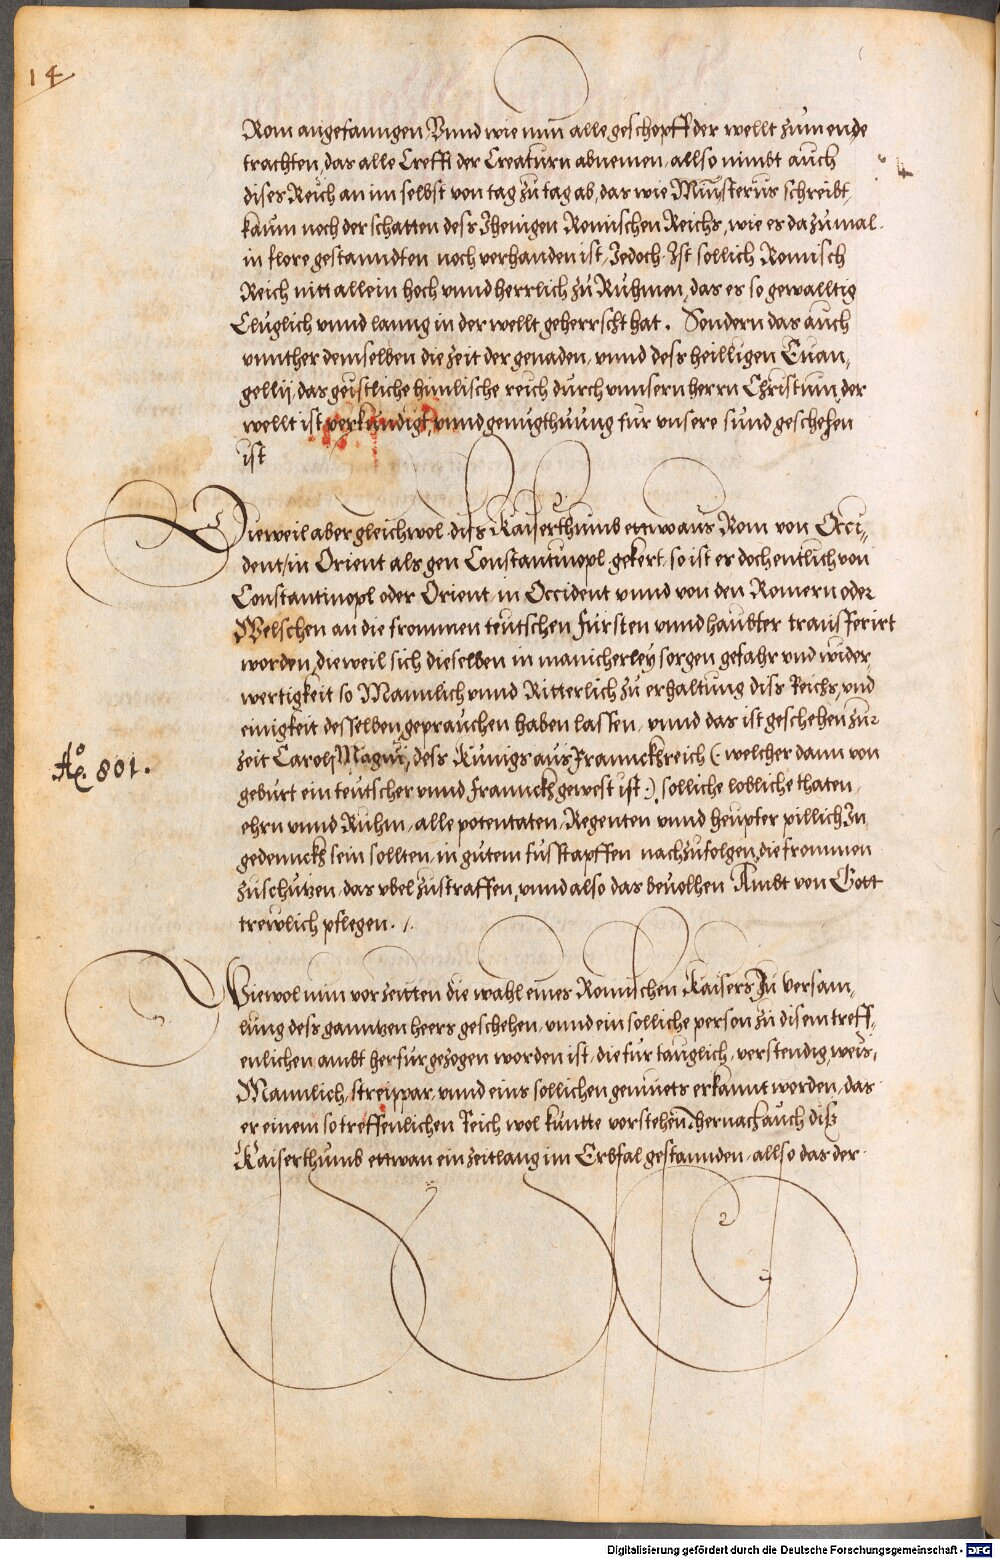 14.
Rom angefanngen Vnnd wie nun alle geschopff der wellt zum ende
trachten, das alle Creffti der Creaturn abnemen, allso nimbt auch
dises Reich an im selbst von tag zu tag ab, das wie Münsterus schreibt,
kaum noch der schatten dess Jhenigen Romischen Reichs, wie es dazumal
in flore gestanndten noch verhanden ist, Jedoch Ist sollich Romisch
Reich nitt allein hoch vnnd herrlich zu Ruhmen, das es so gewalltig
Cluglich vnnd lanng in der wellt geherrscht hat. Sondern das auch
vnnther demselben die zeit der genaden, vnnd dess heilligen Euan,
gellij, das geistliche himlische reich durch vnnsern herrn Christum, der
wellt ist verkundigt, vnnd genugthuung fur vnsere sund geschehen
ist
Dieweil aber gleichwol diss Kaiserthumb ettwa aus Rom von Occi,
dent, in Orient als gen Constantinopl gekert, so ist es doch entlich von
Constantinopl oder Orient, in Occident vnnd von den Romern oder
Welschen an die frommen teutschen fursten vnnd haubter transferirt
worden, dieweil sich dieselben in manicherley sorgen gefahr vnd wider,
wertigkeit so Mannlich vnnd Ritterlich zu erhaltung diss Reichs, vnd
einigkeit desselben geprauchen haben lassen, vnnd das ist geschehen zur
Ao. 801.
zeit Caroli Magni, dess Kunigs aus Franckhreich (: welcher dann von
geburt ein teutscher vnnd franckh gewest ist :), solliche lobliche thaten,
ehrn vnnd Ruhm, alle potentaten, Regenten vnnd heupter pillich In
gedennckh sein sollten, in gutem fusstapffen nachzufolgen, die frommen
zuschutzen, das vbel zustraffen, vnnd also das beuolhen Ambt von Gott
trewlich pflegen. /.
Wiewol nun vor zeitten die wahl eines Romischen Kaisers Ju versam,
lung dess ganntzen heers geschehen, vnnd ein solliche person zu disem treff,
enlichen ambt herfur gezogen worden ist, die fur tauglich, verstendig, weis,
Mannlich, streippar, vnnd eins sollichen gemuets erkannt worden, das
er einem so treffenlichen Reich wol kuntte vorstehen, hernach auch diß
Kaiserthumb ettwan ein zeitlang im Erbfal gestannden, allso das der
Digitalisierung gefördert durch die Deutsche Forschungsgemeinschaft - DFG